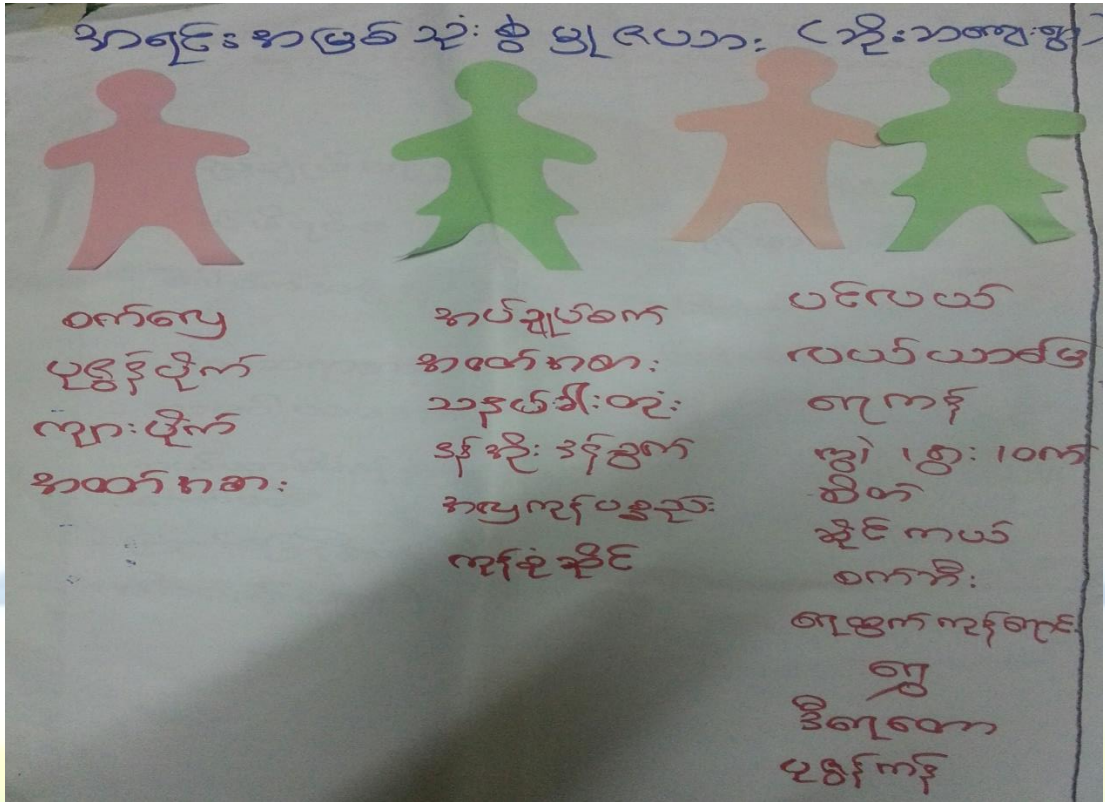 အရင်းအမြစ်သုံးစွဲမှုဇယား (အိုးဘကျေးရွာ)
စက်လှေ
ပုဇွန်ပိုက်
ကျားပိုက်
အထက်အစား
အပ်ချုပ်စက်
အထက်အစား
သနပ်ခါးတုံး
ဒန်အိုး ဒန်ခွက်
အလှကုန်ပစ္စည်း
ကုန်စုံဆိုင်
ပင်လယ်
လယ်ယာမြေ
ရေကန်
ကျွဲ၊ နွား၊ ဝက်
ဆိတ်
ဆိုင်ကယ်
စက်ဘီး
ရေထွက်ကုန်ရောင်း
ရွှေ
ဒီရေတော
ပုဇွန်ကန်